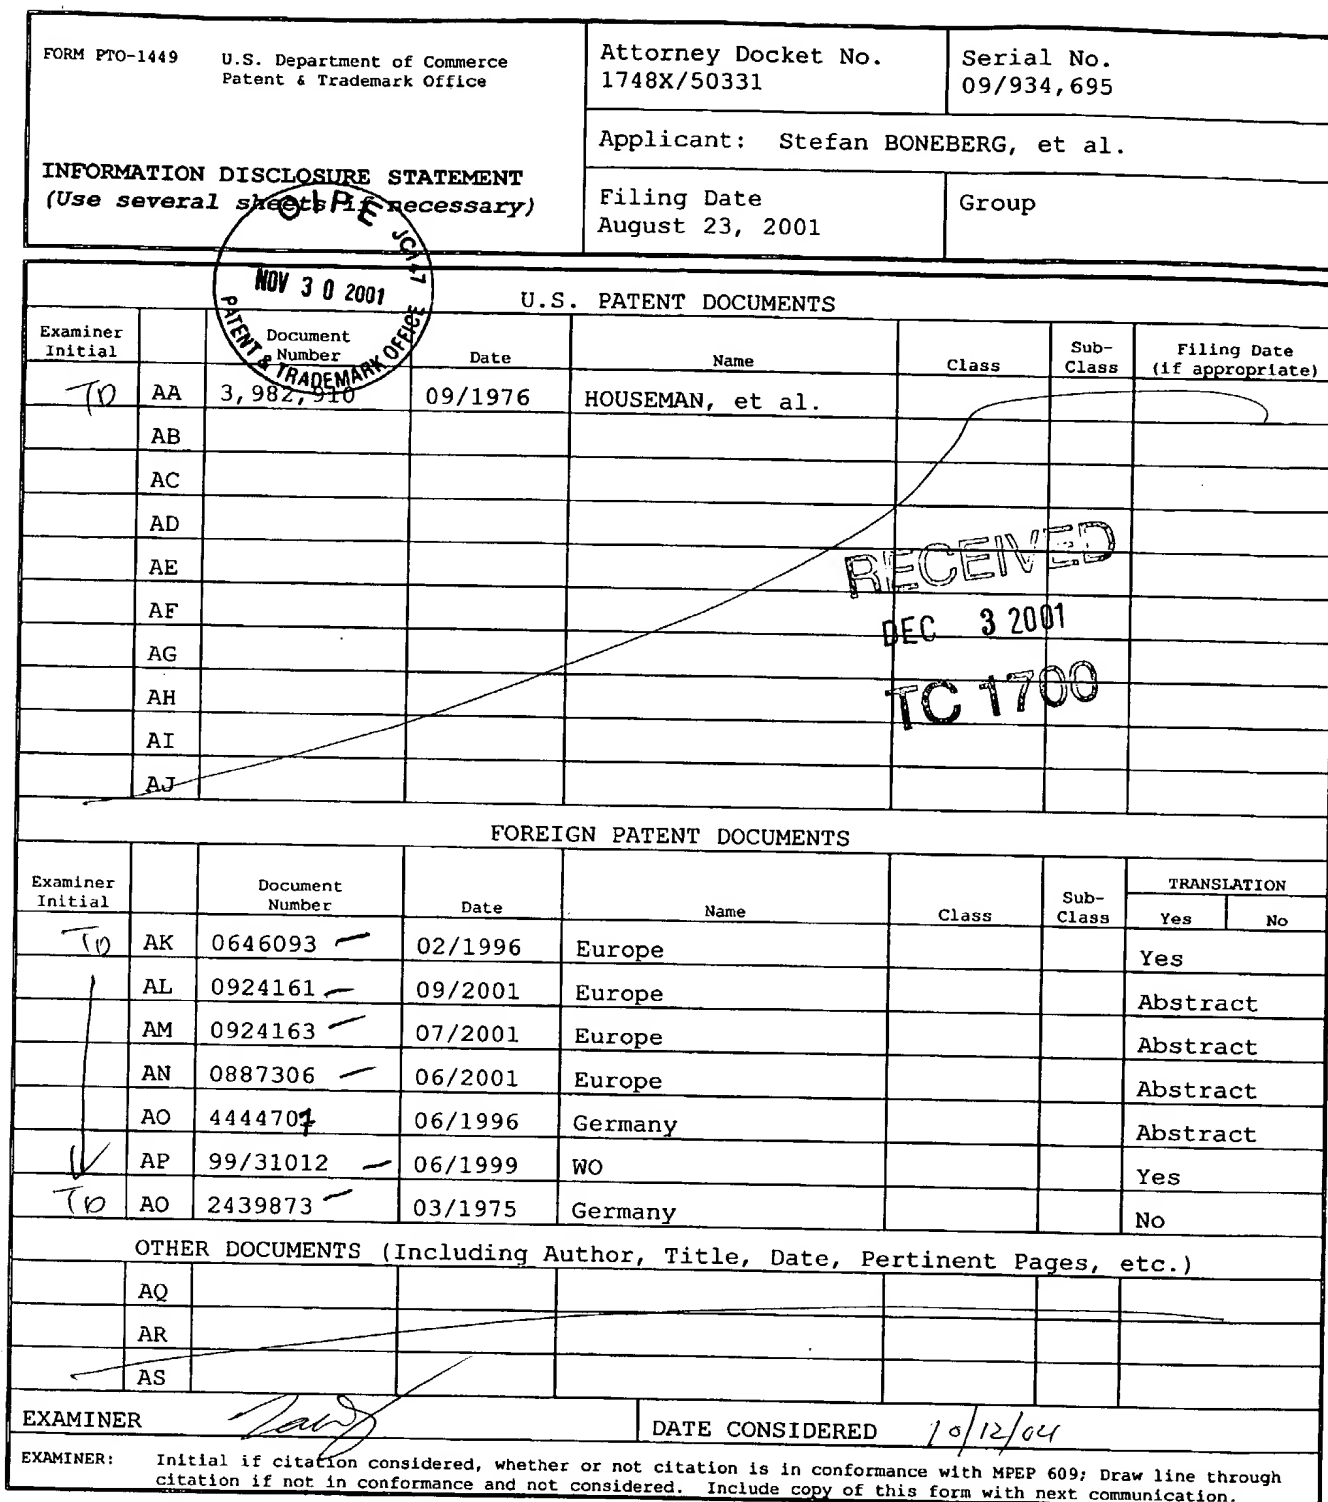 FORM PTO-1449 U.S. Department of Commerce
Patent & Trademark Office
Attorney Docket No.
1748X/50331
Serial No.
09/934,695
Applicant: Stefan BONEBERG, et al.
INFORMATION DISCLOSURE STATEMENT
(Use several sheets if necessary)
Filing Date
August 23, 2001
Group
OIPE JC147
NOV 30 2001
PATENT & TRADEMARK OFFICE
U.S. PATENT DOCUMENTS
Examiner Initial Document Number Date Name Class Sub-Class Filing Date (if appropriate)
TD AA 3,982,910 09/1976 HOUSEMAN, et al.
AB
AC
AD
AE
AF
AG
AH
AI
AJ
RECEIVED
DEC 3 2001
TC 1700
FOREIGN PATENT DOCUMENTS
Examiner Initial Document Number Date Name Class Sub-Class TRANSLATION Yes No
TD AK 0646093 02/1996 Europe Yes
AL 0924161 09/2001 Europe Abstract
AM 0924163 07/2001 Europe Abstract
AN 0887306 06/2001 Europe Abstract
AO 06/1996 Germany Abstract
AP 99/31012 06/1999 WO Yes
TD AO 2439873 03/1975 Germany No
OTHER DOCUMENTS (Including Author, Title, Date, Pertinent Pages, etc.)
AQ
AR
AS
EXAMINER DATE CONSIDERED 10/12/04
EXAMINER: Initial if citation considered, whether or not citation is in conformance with MPEP 609; Draw line through
citation if not in conformance and not considered. Include copy of this form with next communication.